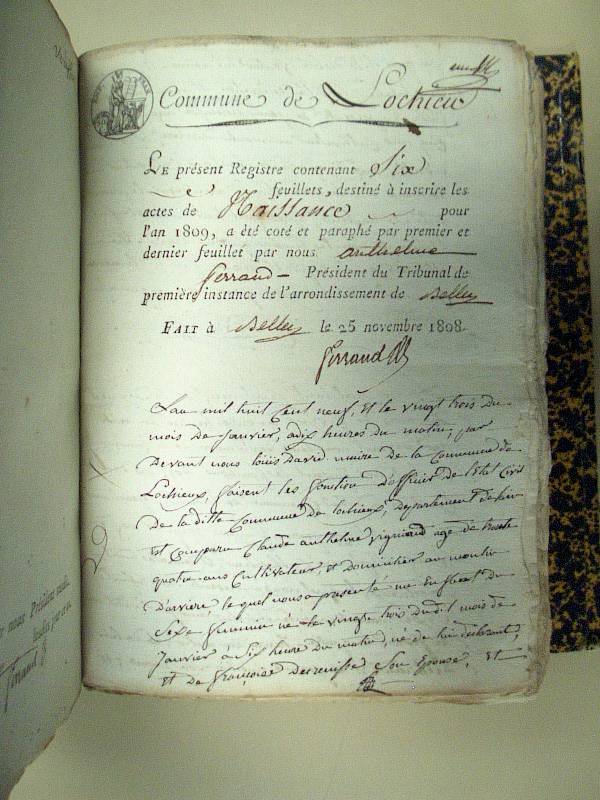 Commune de Lochieu
LE présent Registre contenant Six
feuillets, destiné à inscrire les
actes de Naissance pour
l'an 1809, a été coté et paraphé par premier et
dernier feuillet par nous anthelme
ferrand Président du Tribunal de
première instance de l'arrondissement de Belley
FAIT à Belley le 25 novembre 1808.
ferrand
L'an mil huit cent neuf, et le vingt trois du
mois de janvier, a dix heures du matin, par
Devant nous loüis David maire de la Commune de
Lochieux, faisent les fonction d'officier de l'Etat Civil
De la ditte Commune de lochieux, departement de l'ain
Est comparu Claude anthelme age de trente
quatre ans Cultivateur, et domicilier au moulin
D'arviere, le quel nous a presenté un Enfant du
Sexe feminin né le vingt trois dudit mois de
janvier a six heure du matin, né de lui déclarant,
Et de françoise Son Epouse, Et
nous Président